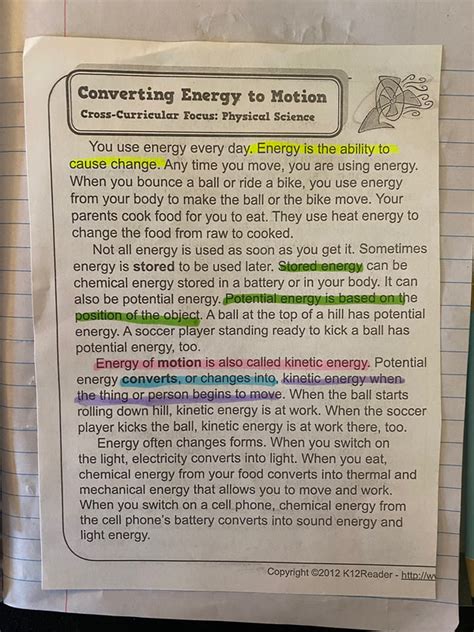 Converting Energy to Motion
Cross-Curricular Focus: Physical Science
You use energy every day. Energy is the ability to
cause change. Any time you move, you are using energy.
When you bounce a ball or ride a bike, you use energy
from your body to make the ball or the bike move. Your
parents cook food for you to eat. They use heat energy to
change the food from raw to cooked.
Not all energy is used as soon as you get it. Sometimes
energy is stored to be used later. Stored energy can be
chemical energy stored in a battery or in your body. It can
also be potential energy. Potential energy is based on the
position of the object. A ball at the top of a hill has potential
energy. A soccer player standing ready to kick a ball has
potential energy, too.
Energy of motion is also called kinetic energy. Potential
energy converts, or changes into, kinetic energy when
the thing or person begins to move. When the ball starts
rolling down hill, kinetic energy is at work. When the soccer
player kicks the ball, kinetic energy is at work there, too.
Energy often changes forms. When you switch on
the light, electricity converts into light. When you eat,
chemical energy from your food converts into thermal and
mechanical energy that allows you to move and work.
When you switch on a cell phone, chemical energy from
the cell phone's battery converts into sound energy and
light energy.
Copyright ©2012 K12Reader - http://w